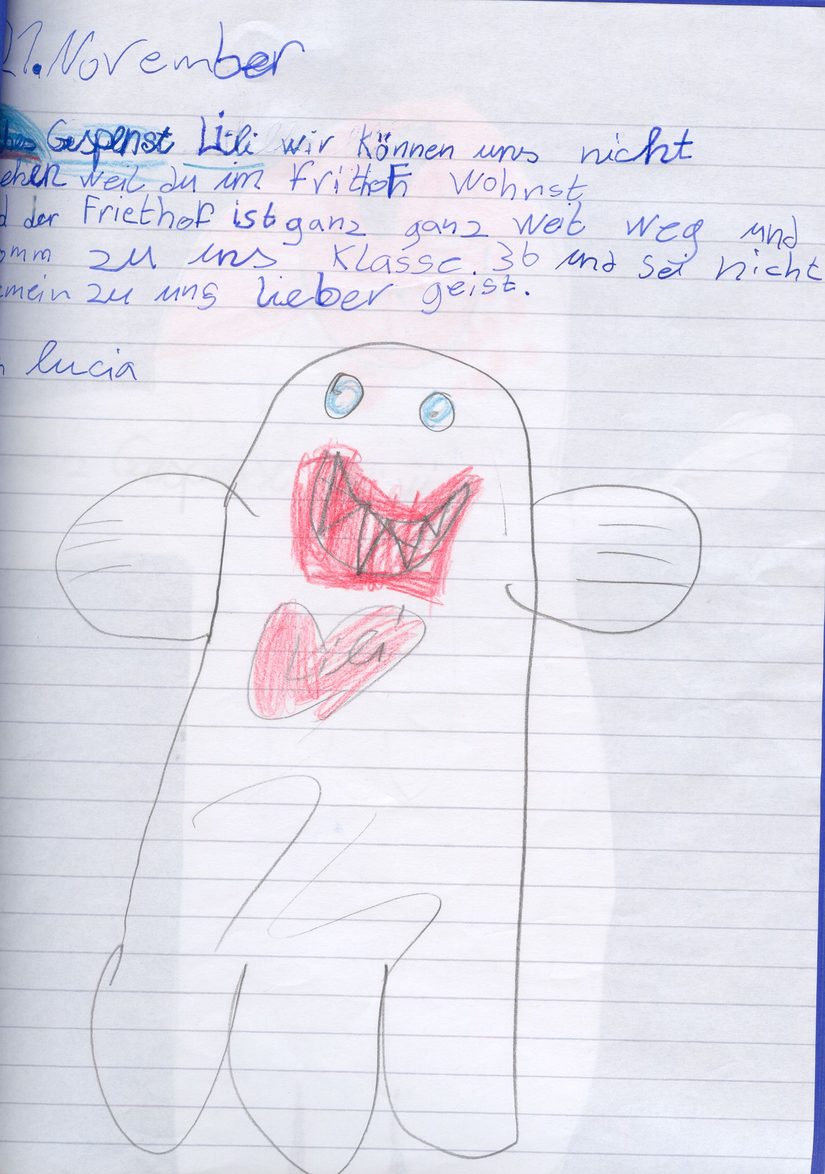 21. November
Gespenst Lili wir können uns nicht
weil du im frithof wohnst
der Friethof ist ganz ganz weit weg und
zu uns Klasse 3b und sei nicht
zu uns lieber geist.
lucia
Lili